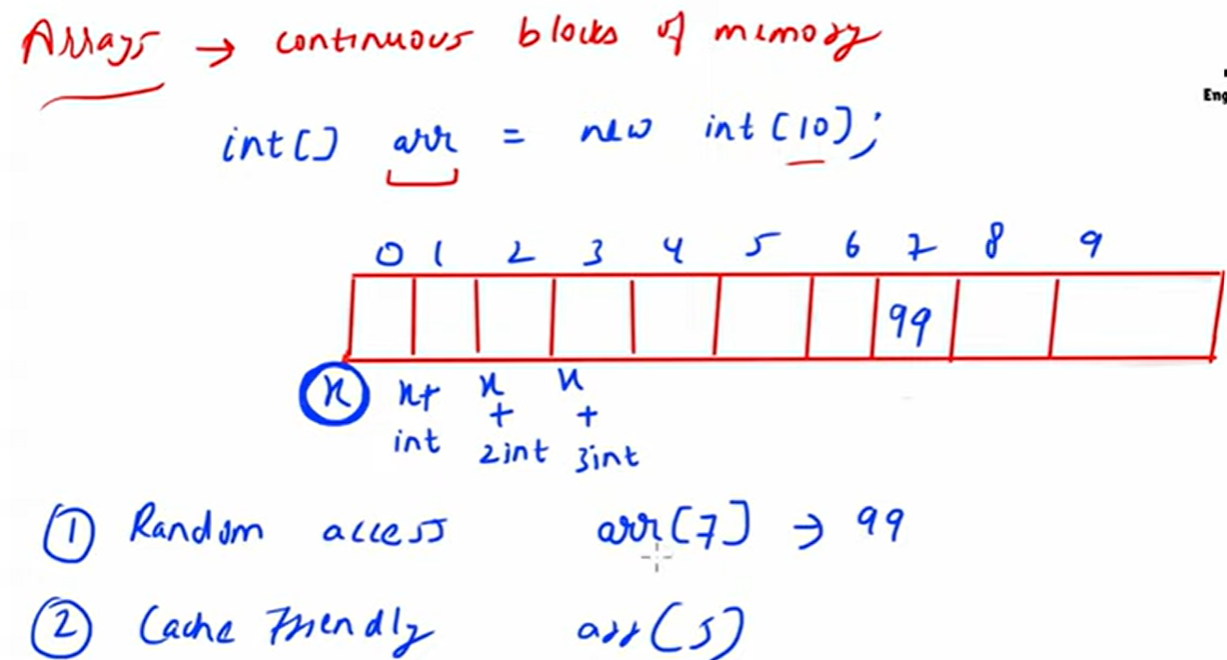 Arrays → continuous blocks of memory
Eng
int[] arr = new int[10];
0 1 2 3 4 5 6 7 8 9
99
x x+ x x
+ +
int 2int 3int
① Random access arr[7] → 99
② Cache Friendly arr[5]